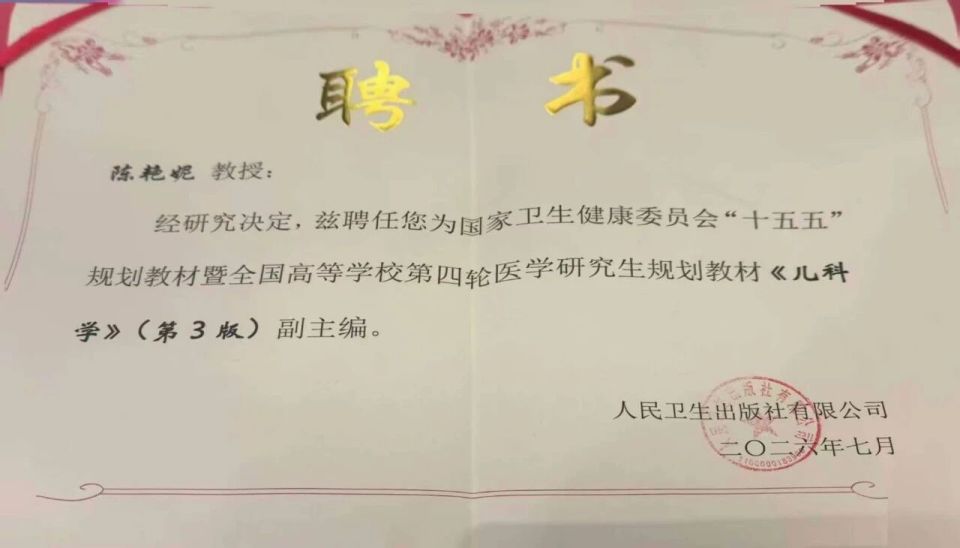 聘书
陈艳妮 教授：
经研究决定，兹聘任您为国家卫生健康委员会“十五五”
规划教材暨全国高等学校第四轮医学研究生规划教材《儿科
学》（第3版）副主编。
人民卫生出版社有限公司
二〇二六年七月